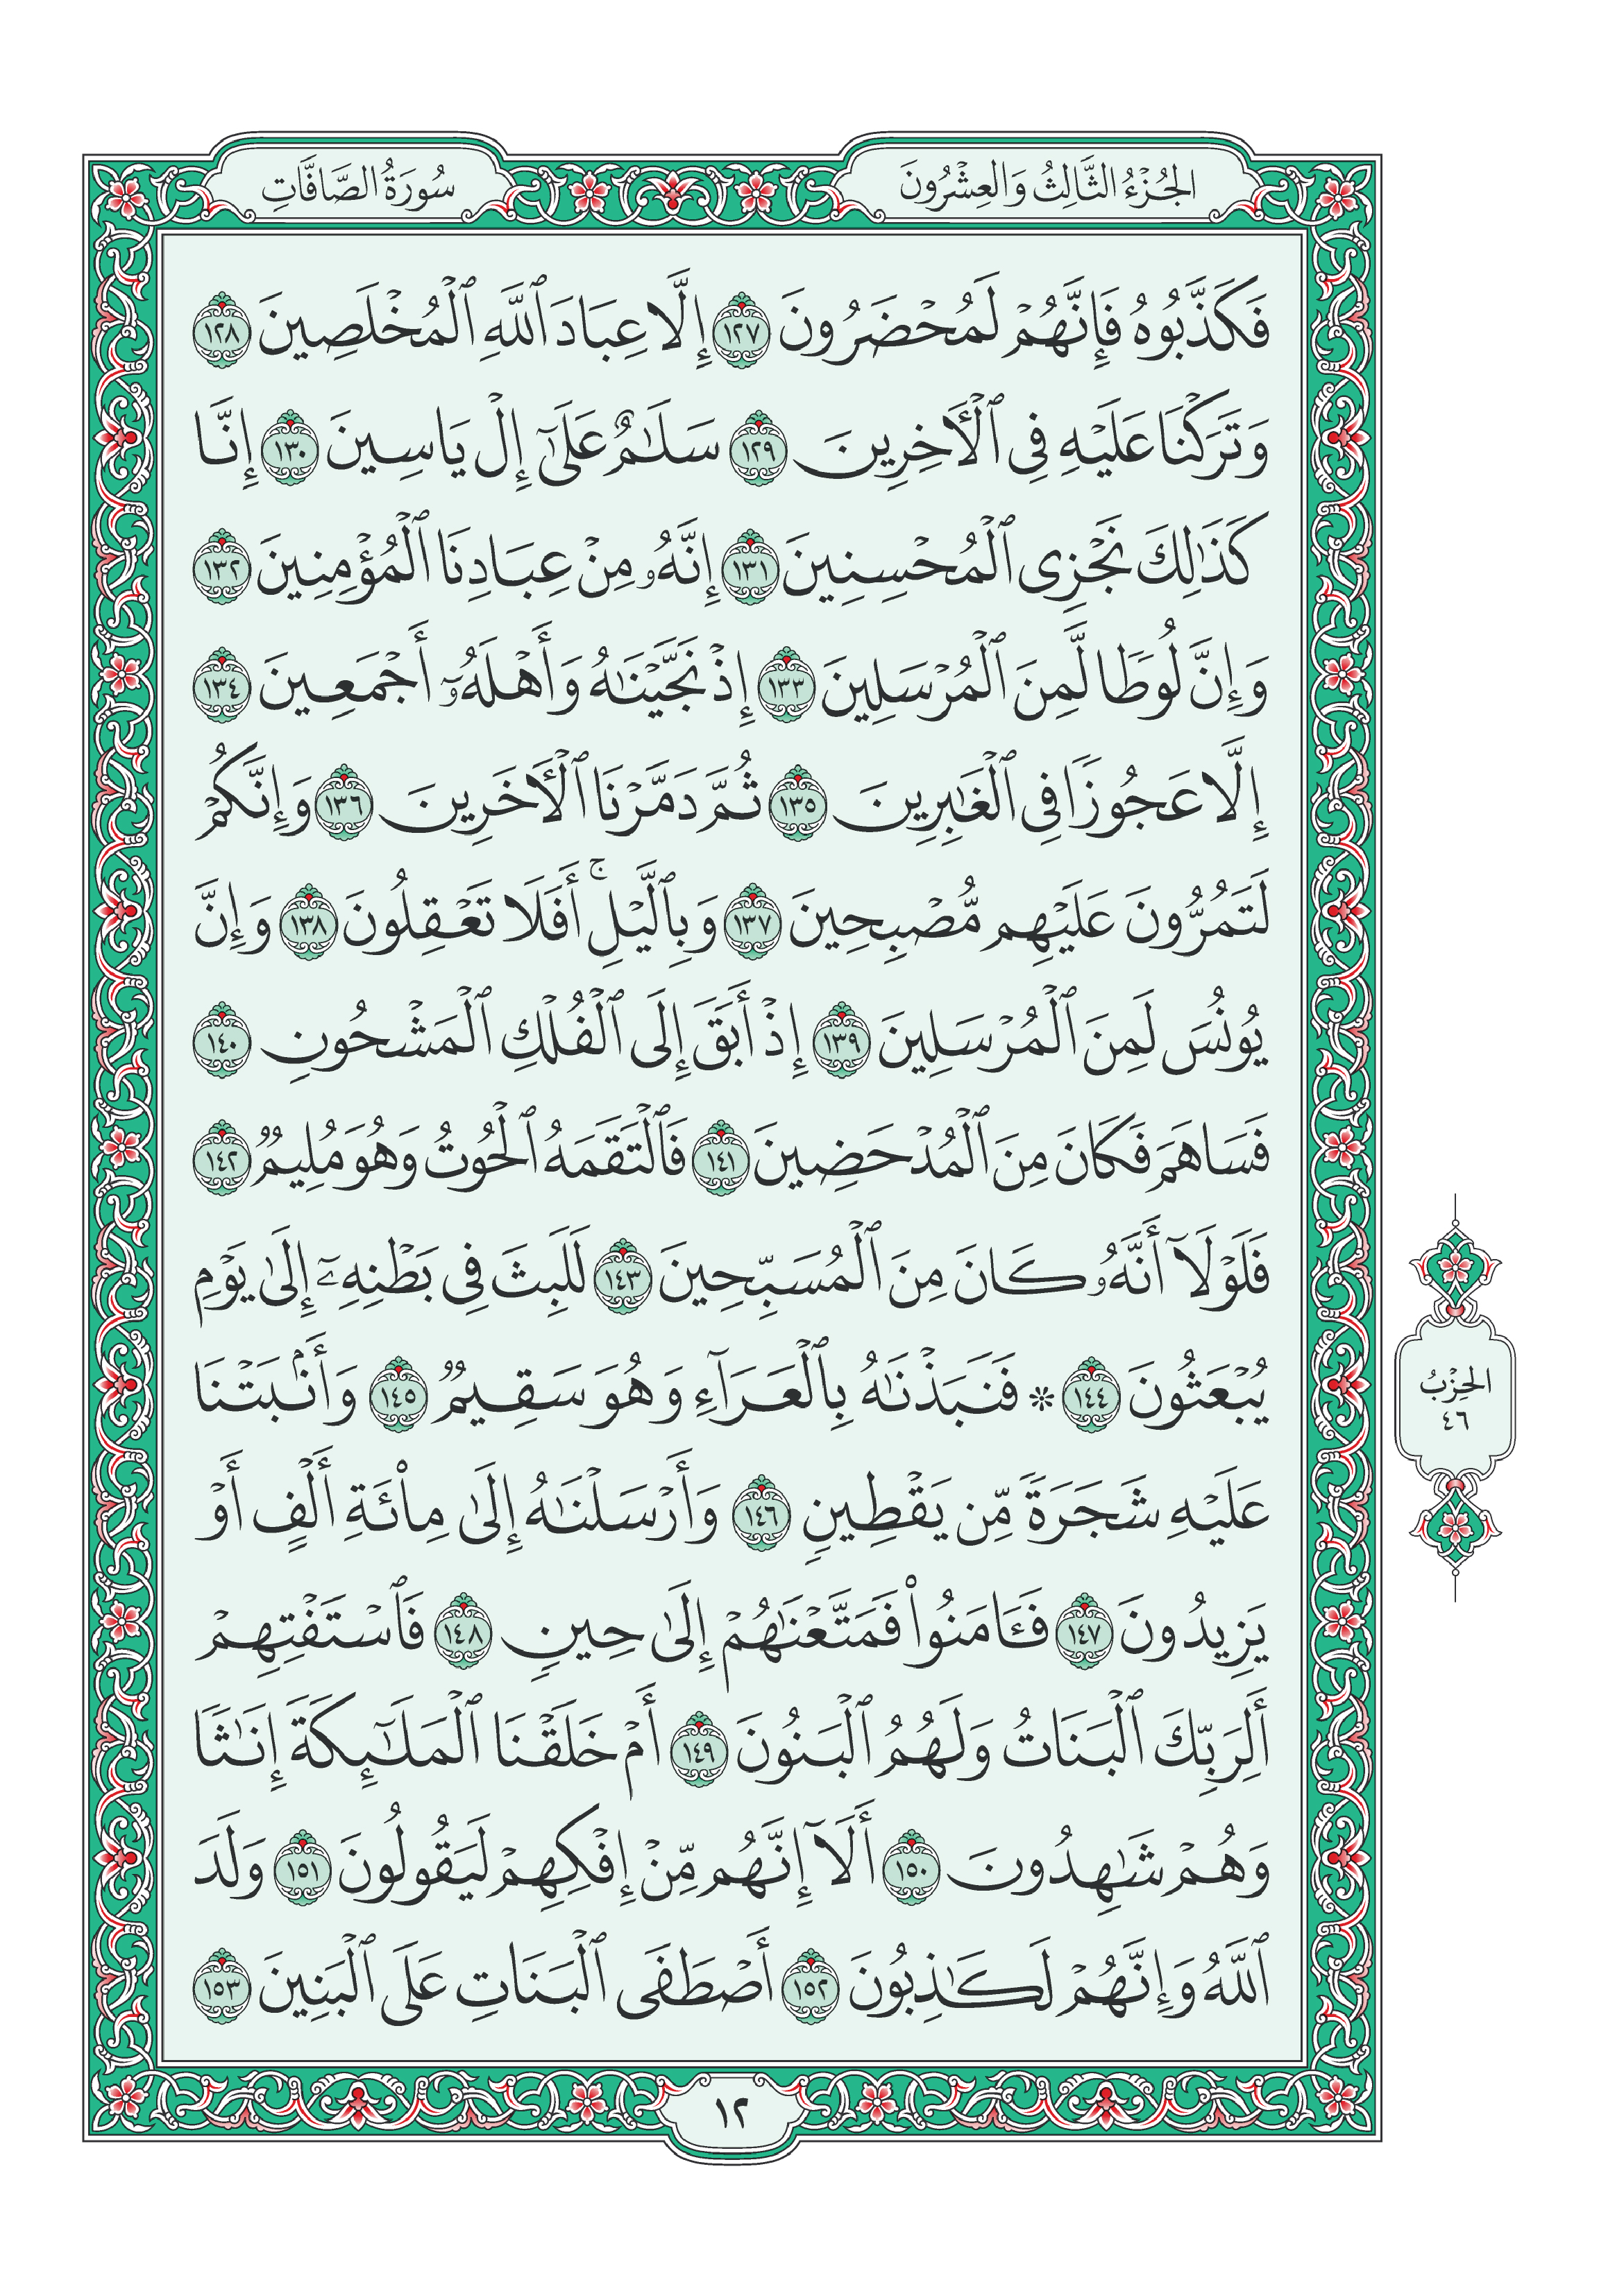 الجُزْءُ الثَّالِثُ وَالعِشْرُونَ
سُورَةُ الصَّافَّاتِ
فَكَذَّبُوهُ فَإِنَّهُمْ لَمُحْضَرُونَ ١٢٧ إِلَّا عِبَادَ ٱللَّهِ ٱلْمُخْلَصِينَ ١٢٨
وَتَرَكْنَا عَلَيْهِ فِى ٱلْأَخِرِينَ ١٢٩ سَلَـٰمٌ عَلَىٰٓ إِلْ يَاسِينَ ١٣٠ إِنَّا
كَذَٰلِكَ نَجْزِى ٱلْمُحْسِنِينَ ١٣١ إِنَّهُۥ مِنْ عِبَادِنَا ٱلْمُؤْمِنِينَ ١٣٢
وَإِنَّ لُوطًا لَّمِنَ ٱلْمُرْسَلِينَ ١٣٣ إِذْ نَجَّيْنَـٰهُ وَأَهْلَهُۥٓ أَجْمَعِينَ ١٣٤
إِلَّا عَجُوزًا فِى ٱلْغَـٰبِرِينَ ١٣٥ ثُمَّ دَمَّرْنَا ٱلْأَخَرِينَ ١٣٦ وَإِنَّكُمْ
لَتَمُرُّونَ عَلَيْهِم مُّصْبِحِينَ ١٣٧ وَبِٱلَّيْلِ ۚ أَفَلَا تَعْقِلُونَ ١٣٨ وَإِنَّ
يُونُسَ لَمِنَ ٱلْمُرْسَلِينَ ١٣٩ إِذْ أَبَقَ إِلَى ٱلْفُلْكِ ٱلْمَشْحُونِ ١٤٠
فَسَاهَمَ فَكَانَ مِنَ ٱلْمُدْحَضِينَ ١٤١ فَٱلْتَقَمَهُ ٱلْحُوتُ وَهُوَ مُلِيمٌ ١٤٢
فَلَوْلَآ أَنَّهُۥ كَانَ مِنَ ٱلْمُسَبِّحِينَ ١٤٣ لَلَبِثَ فِى بَطْنِهِۦٓ إِلَىٰ يَوْمِ
يُبْعَثُونَ ١٤٤ ۞ فَنَبَذْنَـٰهُ بِٱلْعَرَآءِ وَهُوَ سَقِيمٌ ١٤٥ وَأَنۢبَتْنَا
عَلَيْهِ شَجَرَةً مِّن يَقْطِينٍ ١٤٦ وَأَرْسَلْنَـٰهُ إِلَىٰ مِا۟ئَةِ أَلْفٍ أَوْ
يَزِيدُونَ ١٤٧ فَـَٔامَنُوا۟ فَمَتَّعْنَـٰهُمْ إِلَىٰ حِينٍ ١٤٨ فَٱسْتَفْتِهِمْ
أَلِرَبِّكَ ٱلْبَنَاتُ وَلَهُمُ ٱلْبَنُونَ ١٤٩ أَمْ خَلَقْنَا ٱلْمَلَـٰٓئِكَةَ إِنَـٰثًا
وَهُمْ شَـٰهِدُونَ ١٥٠ أَلَآ إِنَّهُم مِّنْ إِفْكِهِمْ لَيَقُولُونَ ١٥١ وَلَدَ
ٱللَّهُ وَإِنَّهُمْ لَكَـٰذِبُونَ ١٥٢ أَصْطَفَى ٱلْبَنَاتِ عَلَى ٱلْبَنِينَ ١٥٣
الحِزْبُ
٤٦
١٢